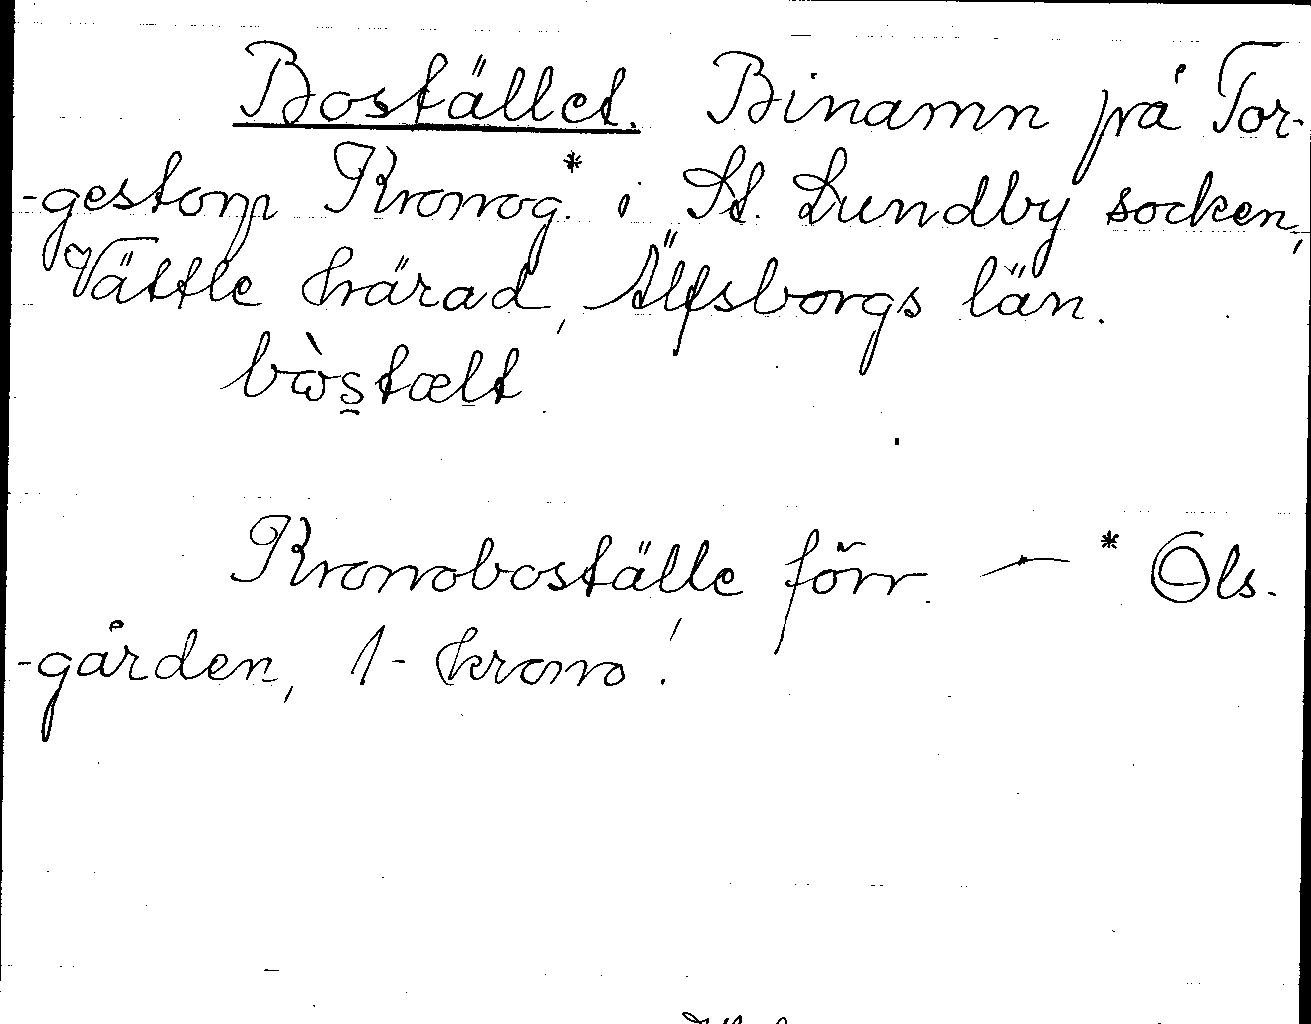 Bostället. Binamn på Tor-
-gestorp Kronog.* i St. Lundby socken,
Vättle härad, Älfsborgs län.
bὼstælt
Kronoboställe förr. — * Ols-
-gården, 1- krono!